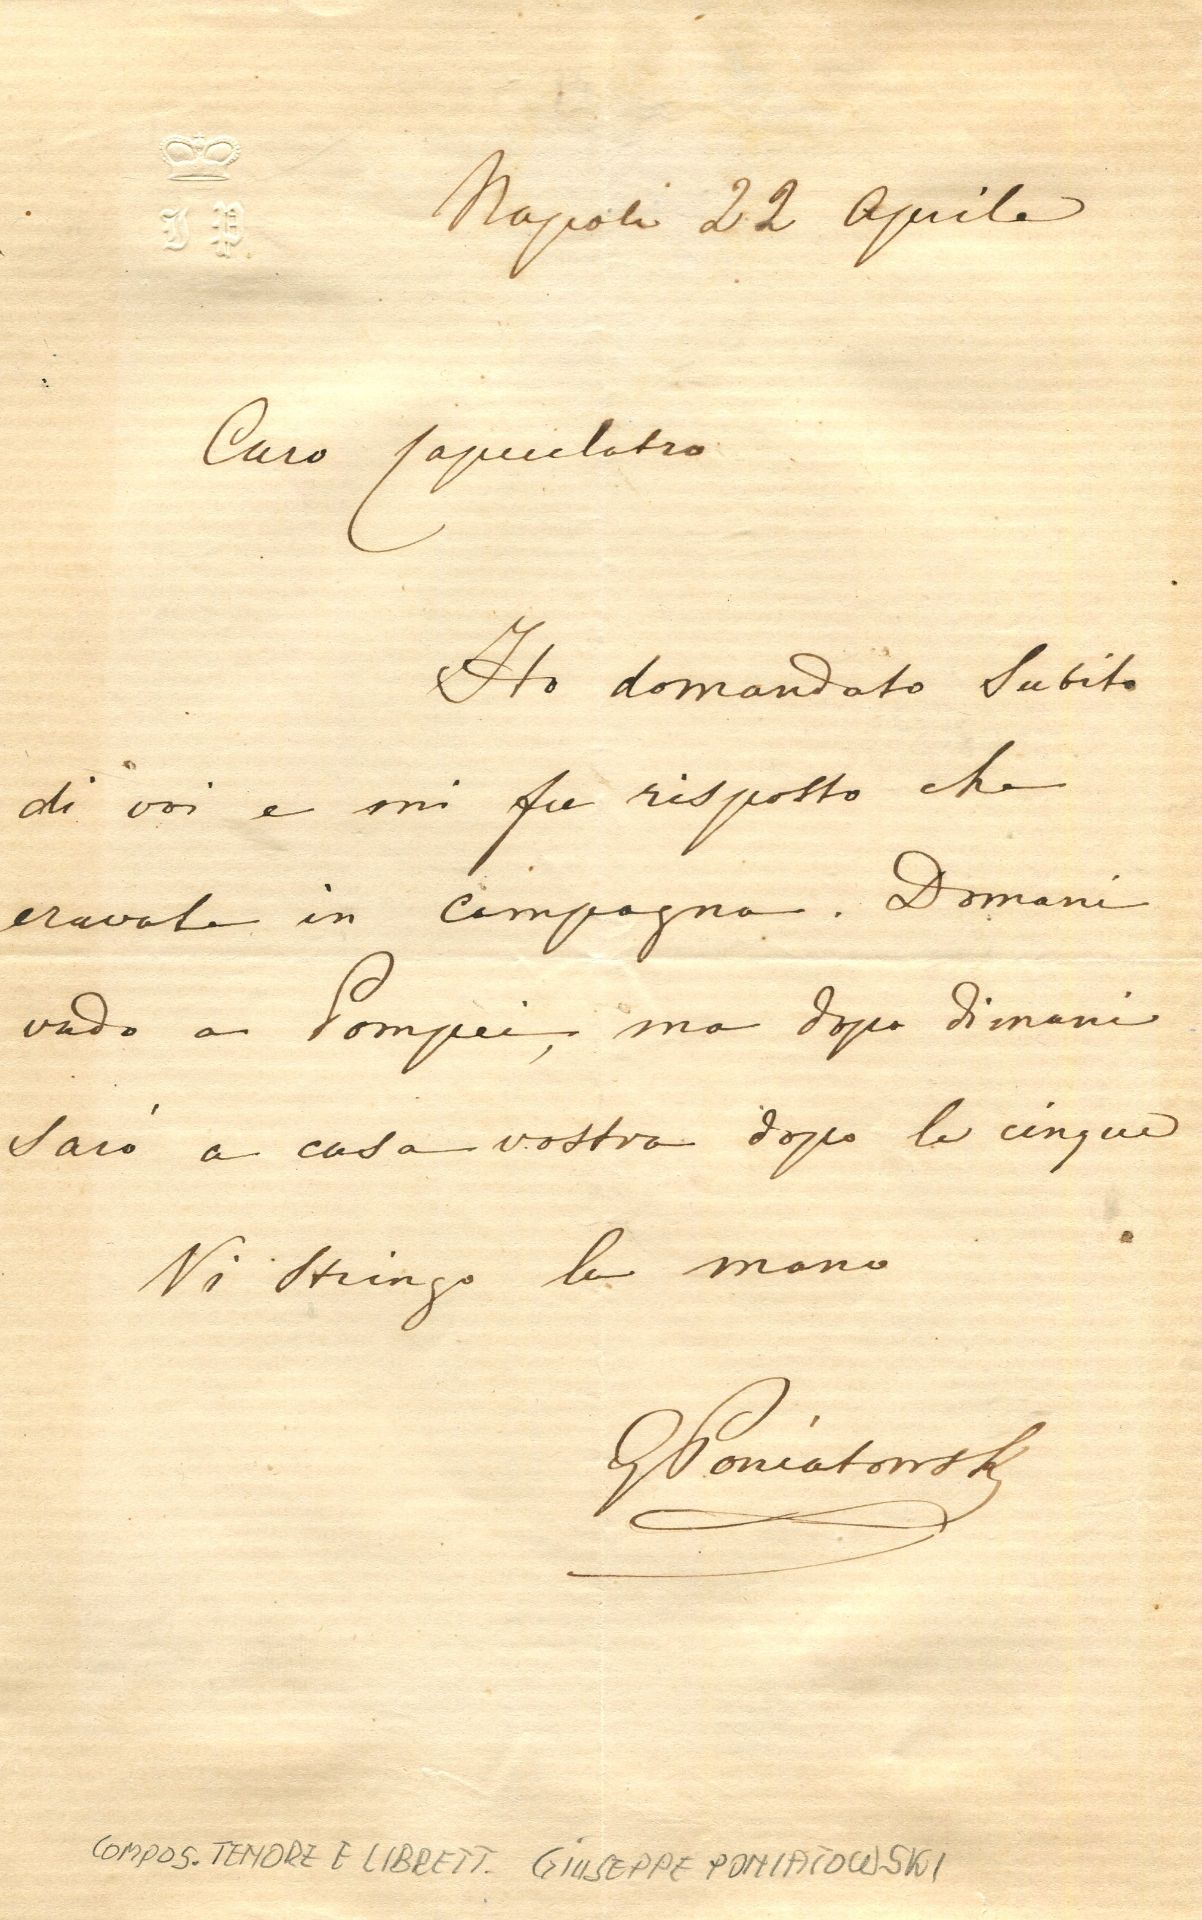 J P.
Napoli 22 Aprile
Caro Capecelatro
Ho domandato Subito
di voi e mi fu risposto che
eravate in campagna. Domani
vado a Pompei, ma dopo dimani
Sarò a casa vostra dopo le cinque
Vi Stringo la mano
G Poniatowski
COMPOS. TENORE E LIBRETT. GIUSEPPE PONIATOWSKI